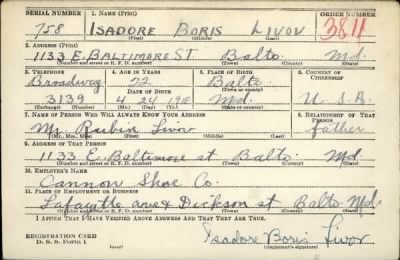 SERIAL NUMBER 1. NAME (Print) ORDER NUMBER
758 ISADORE BORIS LIVOV 3811
(First) (Middle) (Last)
2. ADDRESS (Print)
1133 E. BALTIMORE ST Balto. Md.
(Number and street or R. F. D. number) (Town) (County) (State)
3. TELEPHONE 4. AGE IN YEARS 5. PLACE OF BIRTH 6. COUNTRY OF CITIZENSHIP
Broadway 22 Balto.
DATE OF BIRTH (Town or county)
3139 4 24 Md. U. S. A.
(Exchange) (Number) (Mo.) (Day) (Yr.) (State or country)
7. NAME OF PERSON WHO WILL ALWAYS KNOW YOUR ADDRESS 8. RELATIONSHIP OF THAT PERSON
Mr. Rubin Livov father
(Mr., Mrs., Miss) (First) (Middle) (Last)
9. ADDRESS OF THAT PERSON
1133 E. Baltimore st Balto. Md.
(Number and street or R. F. D. number) (Town) (County) (State)
10. EMPLOYER'S NAME
Cannon Shoe Co.
11. PLACE OF EMPLOYMENT OR BUSINESS
Lafayitte ave & Dickson st Balto. Md.
(Number and street or R. F. D. number) (Town) (County) (State)
I AFFIRM THAT I HAVE VERIFIED ABOVE ANSWERS AND THAT THEY ARE TRUE.
REGISTRATION CARD
D. S. S. Form 1 (over) Isadore Boris Livov
(Registrant's signature)